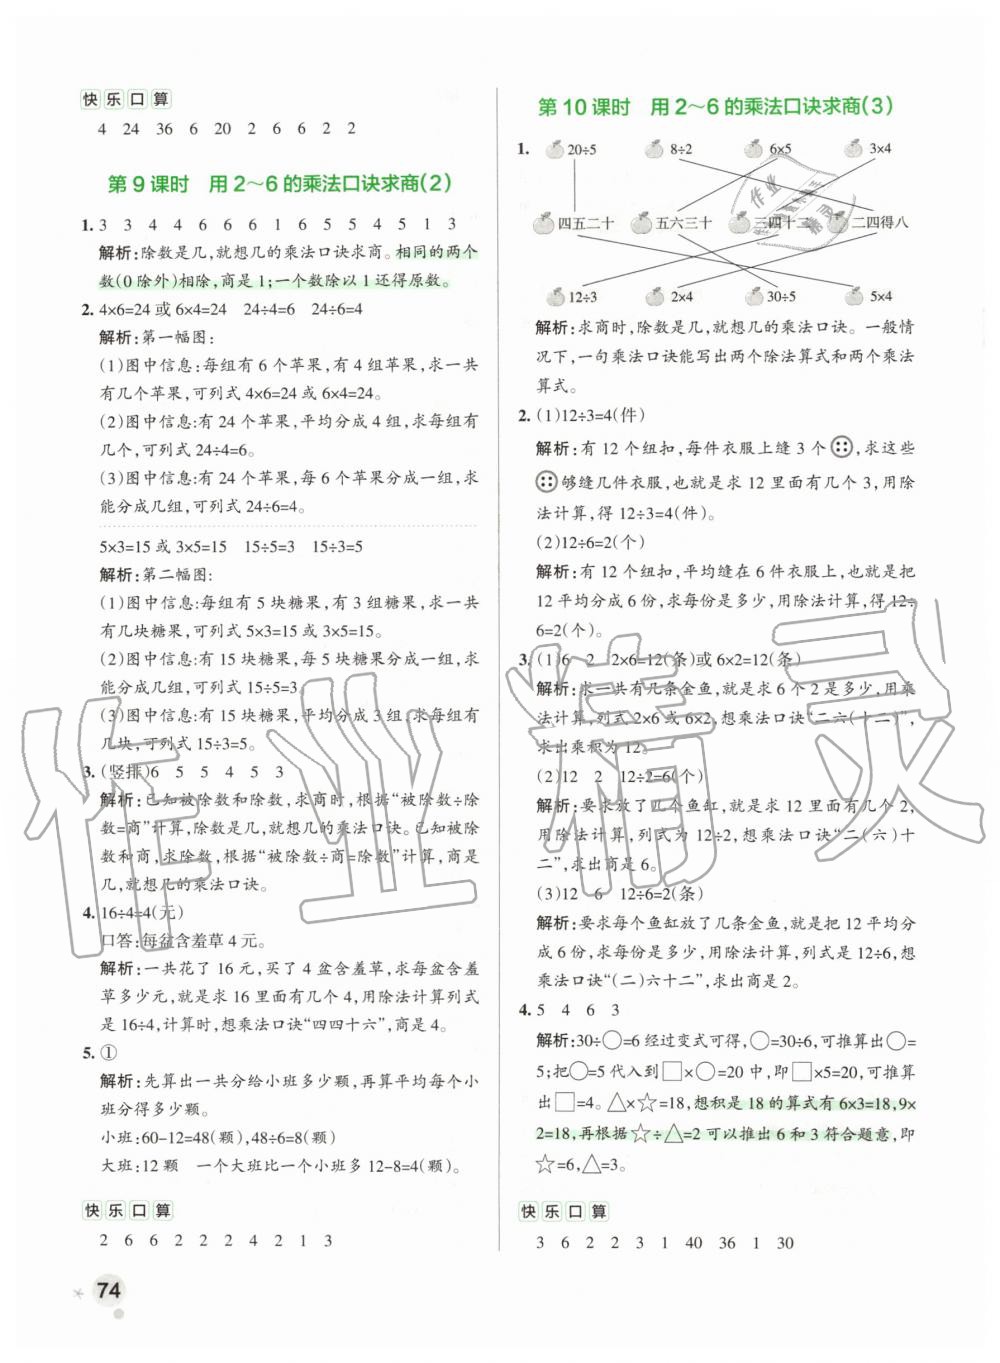 快乐口算
4 24 36 6 20 2 6 6 2 2
第9课时 用2～6的乘法口诀求商(2)
1. 3 3 4 4 6 6 6 1 6 5 5 4 5 1 3
解析:除数是几,就想几的乘法口诀求商。相同的两个
数(0除外)相除,商是1;一个数除以1还得原数。
2. 4×6=24或6×4=24 24÷4=6 24÷6=4
解析:第一幅图:
(1)图中信息:每组有6个苹果,有4组苹果,求一共
有几个苹果,可列式4×6=24或6×4=24。
(2)图中信息:有24个苹果,平均分成4组,求每组有
几个,可列式24÷4=6。
(3)图中信息:有24个苹果,每6个苹果分成一组,求
能分成几组,可列式24÷6=4。
5×3=15或3×5=15 15÷5=3 15÷3=5
解析:第二幅图:
(1)图中信息:每组有5块糖果,有3组糖果,求一共
有几块糖果,可列式5×3=15或3×5=15。
(2)图中信息:有15块糖果,每5块糖果分成一组,求
能分成几组,可列式15÷5=3
(3)图中信息:有15块糖果,平均分成3组,求每组有
几块,可列式15÷3=5。
3. (竖排)6 5 5 4 5 3
解析:已知被除数和除数,求商时,根据“被除数÷除
数=商”计算,除数是几,就想几的乘法口诀。已知被除
数和商,求除数,根据“被除数÷商=除数”计算,商是
几,就想几的乘法口诀。
4. 16÷4=4(元)
口答:每盆含羞草4元。
解析:一共花了16元,买了4盆含羞草,求每盆含羞
草多少元,就是求16里面有几个4,用除法计算列式
是16÷4,计算时,想乘法口诀“四四十六”,商是4。
5. ①
解析:先算出一共分给小班多少颗,再算平均每个小
班分得多少颗。
小班:60-12=48(颗),48÷6=8(颗)
大班:12颗 一个大班比一个小班多12-8=4(颗)。
快乐口算
2 6 6 2 2 2 4 2 1 3
74
第10课时 用2～6的乘法口诀求商(3)
1. 20÷5 8÷2 6×5 3×4
四五二十 五六三十 三四十二 二四得八
12÷3 2×4 30÷5 5×4
解析:求商时,除数是几,就想几的乘法口诀。一般情
况下,一句乘法口诀能写出两个除法算式和两个乘法
算式。
2. (1)12÷3=4(件)
解析:有12个纽扣,每件衣服上缝3个,求这些
够缝几件衣服,也就是求12里面有几个3,用除
法计算,得12÷3=4(件)。
(2)12÷6=2(个)
解析:有12个纽扣,平均缝在6件衣服上,也就是把
12平均分成6份,求每份是多少,用除法计算,得12÷
6=2(个)。
3. (1)6 2 2×6=12(条)或6×2=12(条)
解析:求一共有几条金鱼,就是求6个2是多少,用乘
法计算,列式2×6或6×2,想乘法口诀“二六(十二)”,
求出乘积为12。
(2)12 2 12÷2=6(个)
解析:要求放了几个鱼缸,就是求12里面有几个2,
用除法计算,列式为12÷2,想乘法口诀“二(六)十
二”,求出商是6。
(3)12 6 12÷6=2(条)
解析:要求每个鱼缸放了几条金鱼,就是把12平均分
成6份,求每份是多少,用除法计算,列式是12÷6,想
乘法口诀“(二)六十二”,求出商是2。
4. 5 4 6 3
解析:30÷○=6经过变式可得,○=30÷6,可推算出○=
5;把○=5代入到□×○=20中,即□×5=20,可推算
出□=4。△×☆=18,想积是18的算式有6×3=18,9×
2=18,再根据☆÷△=2可以推出6和3符合题意,即
☆=6,△=3。
快乐口算
3 6 2 2 3 1 40 36 1 30
作业精灵